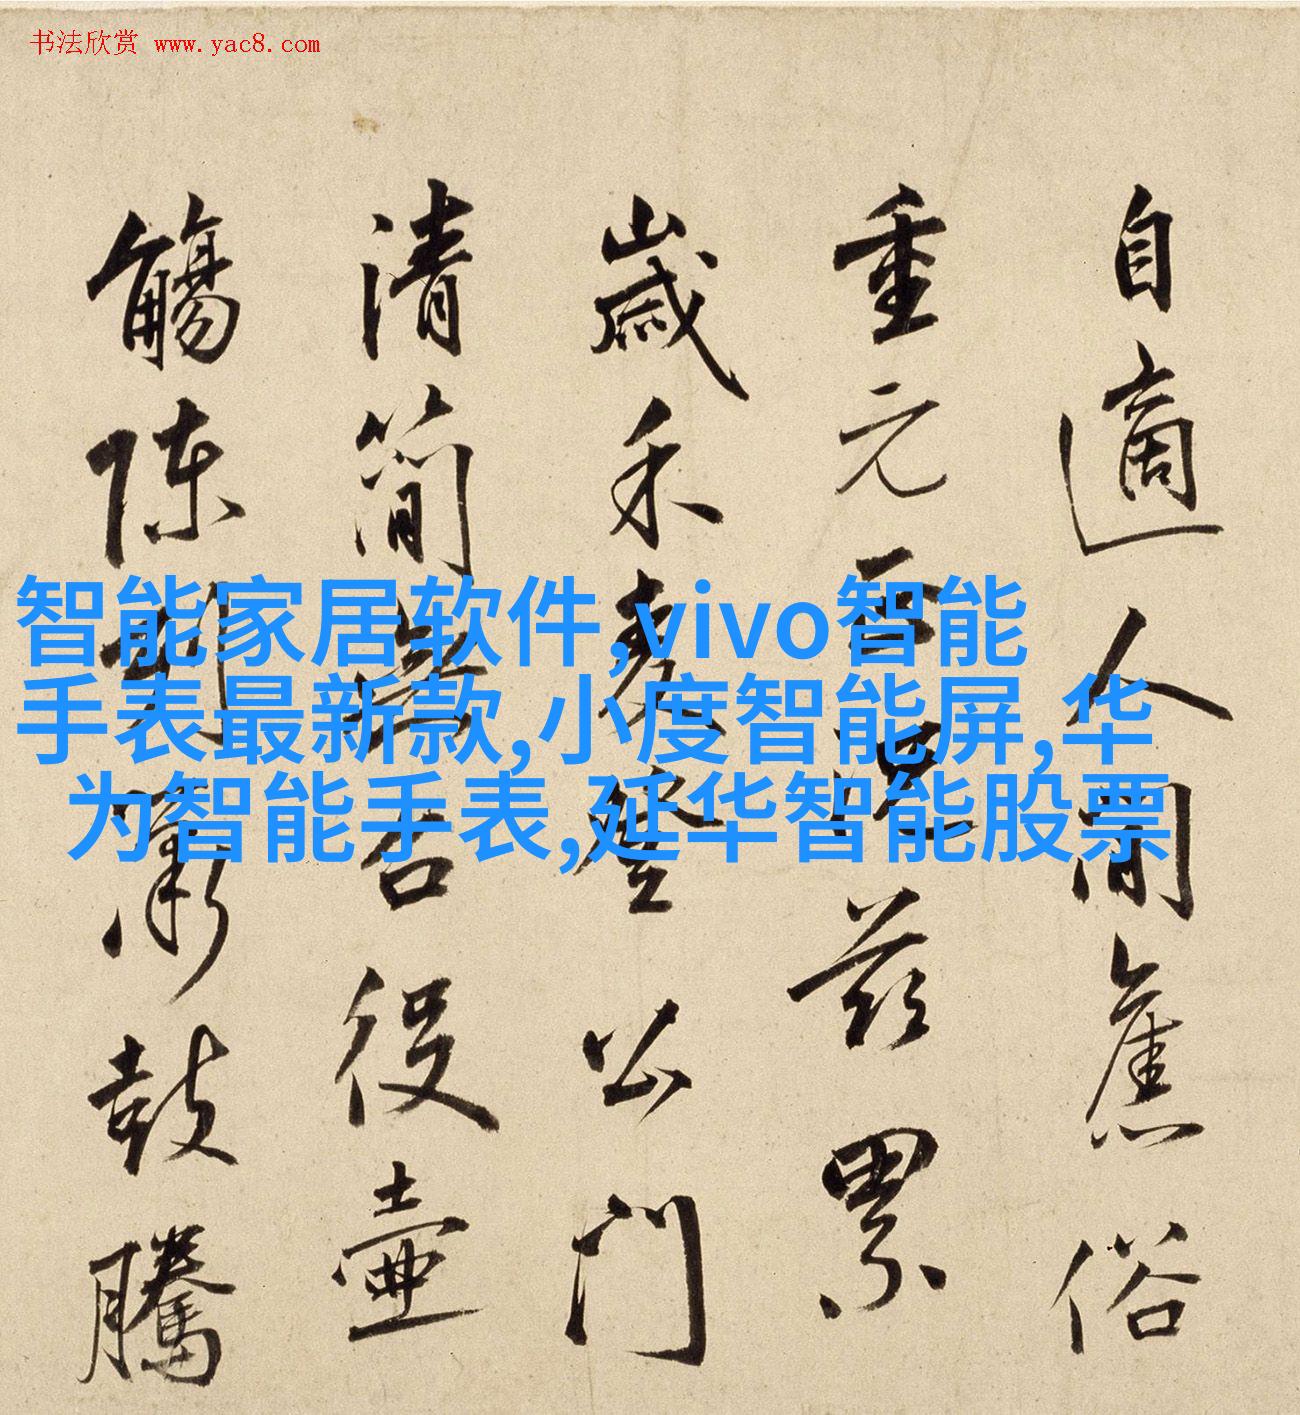 书法欣赏 www.yac8.com
智能家居软件,vivo智能
手表最新款,小度智能屏,华
为智能手表,延华智能股票
自適人間舊俗
重元 茲累
歲禾麦登公門
清簡 吾役壺
觴陳 鼓騰